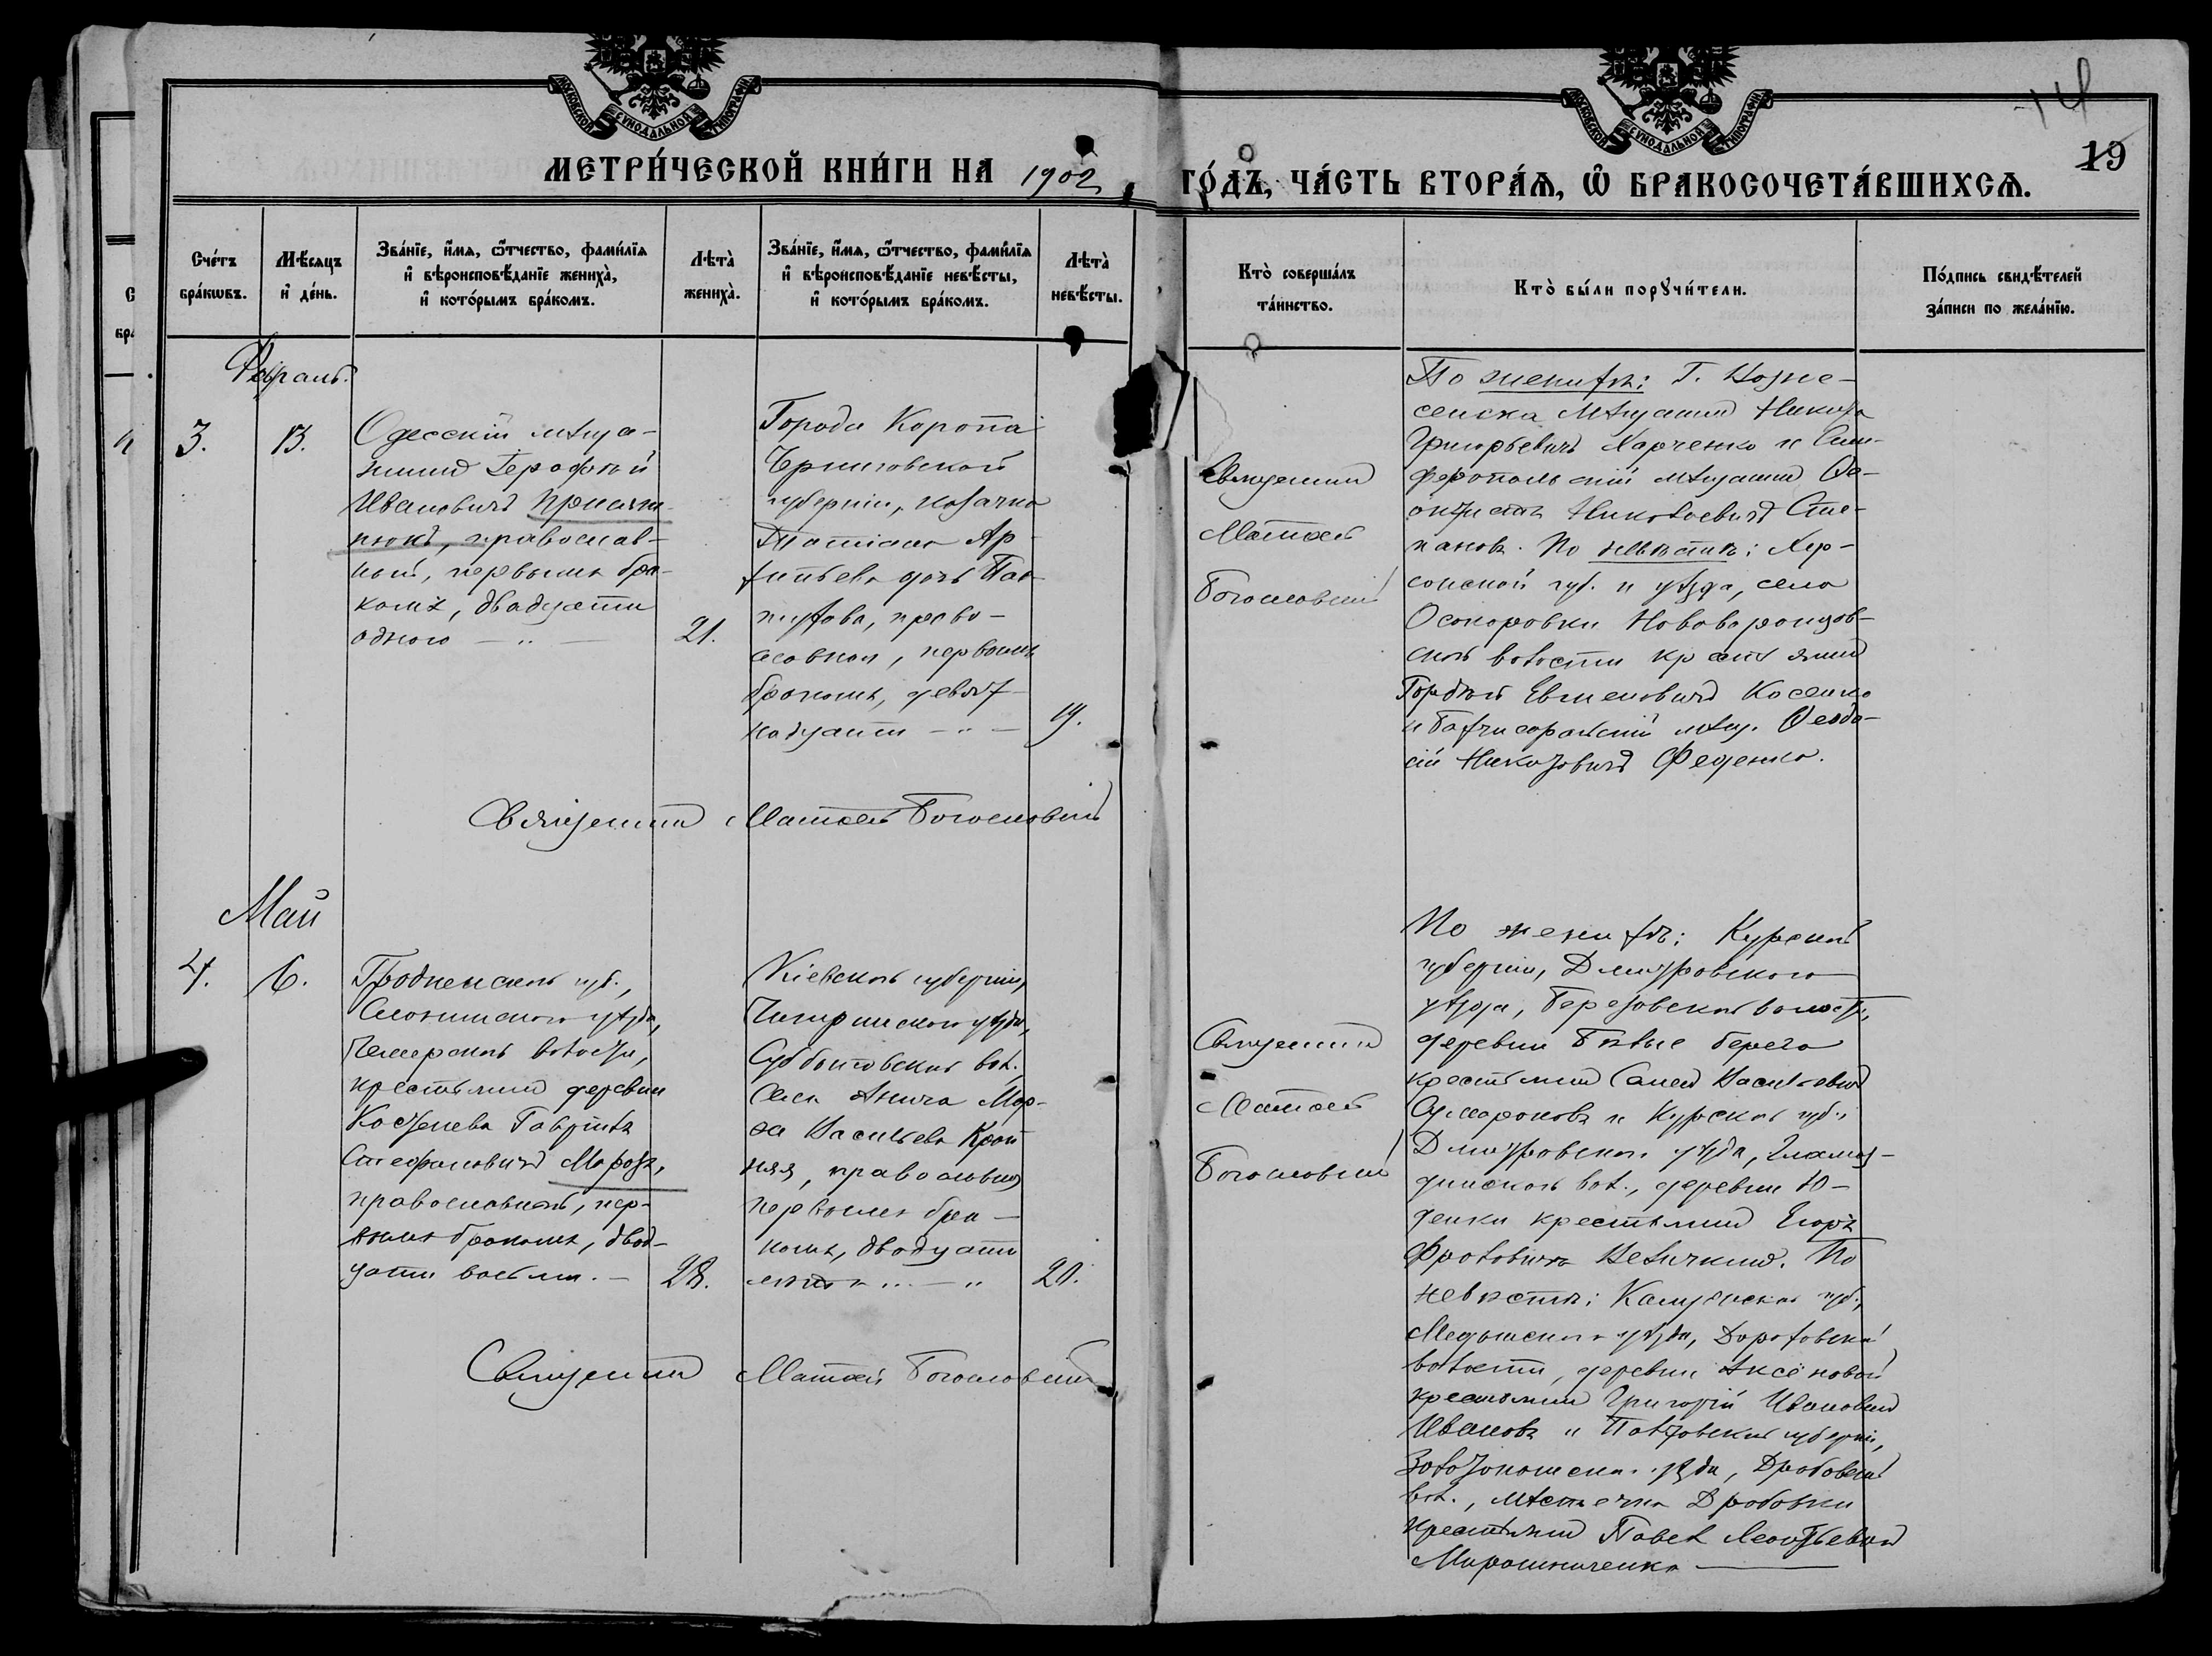 МОСКОВСКОЙ СѴНОДАЛЬНОЙ ТИПОГРАФІИ
МОСКОВСКОЙ СѴНОДАЛЬНОЙ ТИПОГРАФІИ
14
19
МЕТРИ́ЧЕСКОЙ КНИ́ГИ НА 1902
ГО́ДЪ, ЧА́СТЬ ВТОРА́Ѧ, Ѽ БРАКОСОЧЕТА́ВШИХСѦ.
Сче́тъ
бра́кѡвъ.
Мѣ́сяцъ
и҆ де́нь.
Зва́нїе, и҆́мѧ, ѻ҆́тчество, фами́лїѧ
и҆ вѣроисповѣ́данїе жениха̀,
и҆ кото́рымъ бра́комъ.
Лѣта̀
жениха̀.
Зва́нїе, и҆́мѧ, ѻ҆́тчество, фами́лїѧ
и҆ вѣроисповѣ́данїе невѣ́сты,
и҆ кото́рымъ бра́комъ.
Лѣта̀
невѣ́сты.
Кто̀ соверша́лъ
та́инство.
Кто̀ бы́ли порꙋчи́тели.
По́дпись свидѣ́телей
за́писи по жела́нїю.
Февраль.
3.
13.
Одесскій мѣща-
нинъ Герофѣй
Ивановичъ
нюкъ, православ-
ный, первымъ бра-
комъ, двадцати
одного — „ —
21.
Города Коропа
Черниговской
губерніи, казачка
Татіана Ар-
хипьева дочь Пав-
лухова, право-
славная, первымъ
бракомъ, девят-
надцати — „ —
19.
Священникъ
Матѳей
Богословскій
По женихѣ: Г. Возне-
сенска мѣщанинъ Никита
Григорьевичъ Харченко и Сим-
феропольскій мѣщанинъ Ѳе-
октистъ Николаевичъ Сте-
пановъ. По невѣстѣ: Хер-
сонской губ. и уѣзда, села
Осокоровки Нововоронцов-
ской волости крестьянинъ
Гордѣй Евменовичъ Косенко
и Бахчисарайскій мѣщ. Ѳеодо-
сій Николовичъ Феденко.
Священникъ Матѳей Богословскій
Май
4.
6.
Гродненской губ.,
Слонимского уѣзда,
Чемерской волости,
крестьянинъ деревни
Костенева Гавріилъ
Стефановичъ Морозъ,
православный, пер-
вымъ бракомъ, двад-
цати восьми. —
28.
Кіевской губерніи,
Чигиринского уѣзда,
Субботовской вол.,
Села Мар-
ѳа Васильева Край-
няя, православная
первымъ бра-
комъ, двадцати
„ — „
20.
Священникъ
Матѳей
Богословскій
По женихѣ: Курской
губерніи, Дмитровского
уѣзда, Березовской волости,
деревни Бѣлые берега
крестьянинъ Васильевичъ
Сумароковъ и Курской губ.,
Дмитровского уѣзда,
вол., деревни Ю-
денки крестьянинъ Егоръ
Фроловичъ Величкинъ. По
невѣстѣ: Калужской губ.,
Медынского уѣзда, Дороховской
волости, деревни Аксёновой
крестьянинъ Григорій Ивановичъ
Ивановъ и Полтавской губерніи,
Золотоношск. уѣзда, Драбовской
вол., мѣстечка Драбовки
крестьянинъ Павелъ Леонтьевичъ
Мирошниченко —
Священникъ Матѳей Богословскій